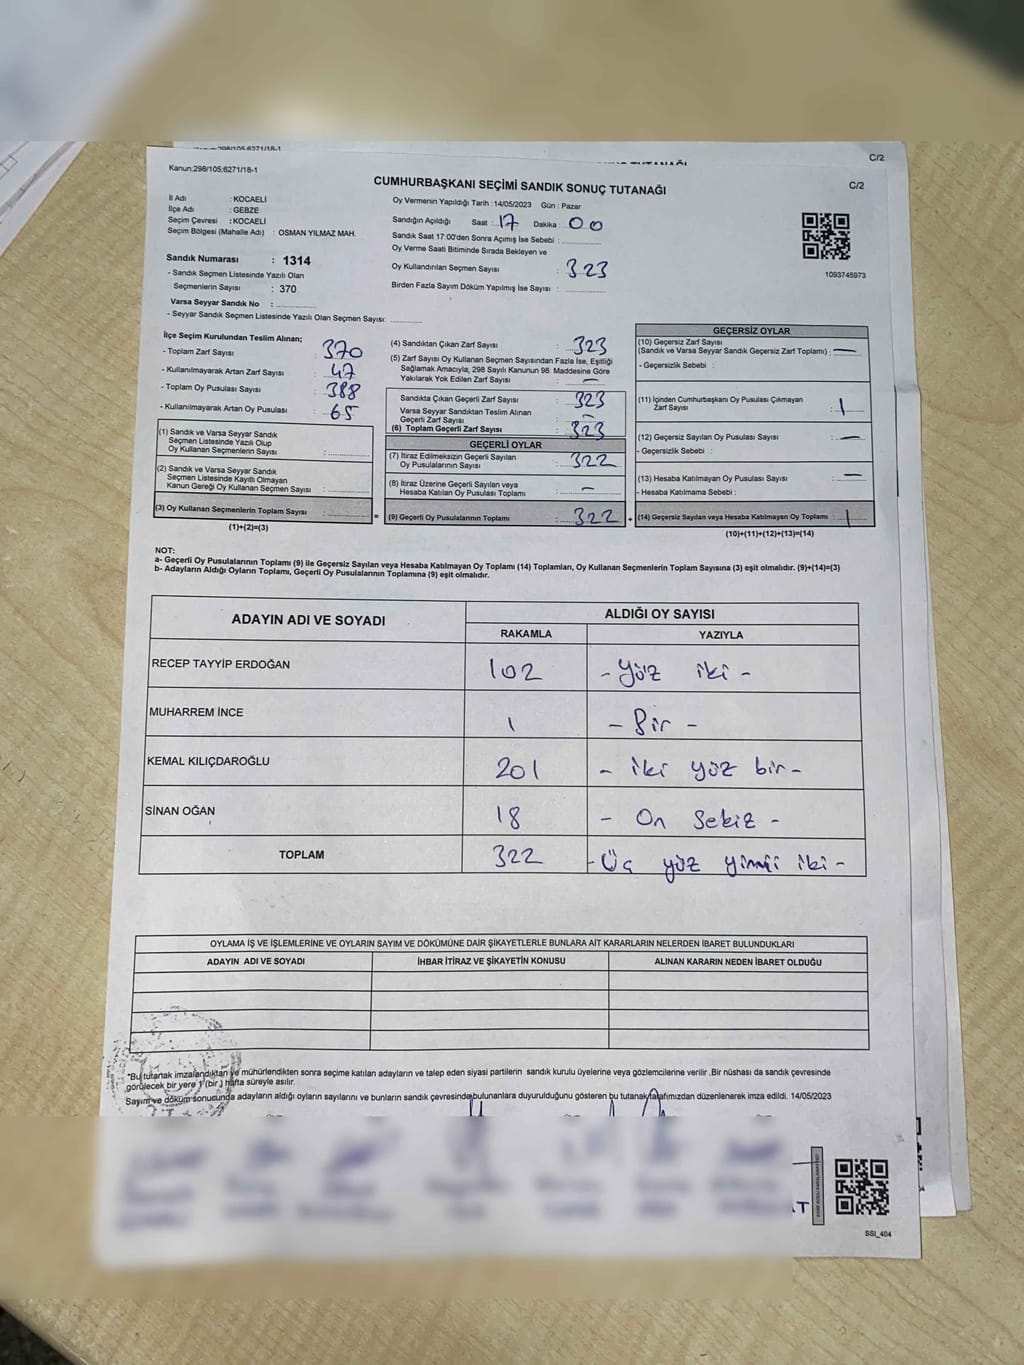 C/2
Kanun;298/105;6271/18-1
C/2
CUMHURBAŞKANI SEÇİMİ SANDIK SONUÇ TUTANAĞI
İl Adı : KOCAELİ
İlçe Adı : GEBZE
Seçim Çevresi : KOCAELİ
Seçim Bölgesi (Mahalle Adı) : OSMAN YILMAZ MAH.
Oy Vermenin Yapıldığı Tarih : 14/05/2023 Gün : Pazar
Sandığın Açıldığı Saat : 17 Dakika : 00
Sandık Saat 17:00'den Sonra Açımış İse Sebebi :
Oy Verme Saati Bitiminde Sırada Bekleyen ve
Oy Kullandırılan Seçmen Sayısı : 323
Birden Fazla Sayım Döküm Yapılmış İse Sayısı :
1093745973
Sandık Numarası : 1314
- Sandık Seçmen Listesinde Yazılı Olan
Seçmenlerin Sayısı : 370
Varsa Seyyar Sandık No :
- Seyyar Sandık Seçmen Listesinde Yazılı Olan Seçmen Sayısı:
İlçe Seçim Kurulundan Teslim Alınan;
- Toplam Zarf Sayısı : 370
- Kullanılmayarak Artan Zarf Sayısı : 47
- Toplam Oy Pusulası Sayısı : 388
- Kullanılmayarak Artan Oy Pusulası : 65
(1) Sandık ve Varsa Seyyar Sandık
Seçmen Listesinde Yazılı Olup
Oy Kullanan Seçmenlerin Sayısı :
(2) Sandık ve Varsa Seyyar Sandık
Seçmen Listesinde Kayıtlı Olmayan
Kanun Gereği Oy Kullanan Seçmen Sayısı :
(3) Oy Kullanan Seçmenlerin Toplam Sayısı :
(1)+(2)=(3)
(4) Sandıktan Çıkan Zarf Sayısı : 323
(5) Zarf Sayısı Oy Kullanan Seçmen Sayısından Fazla İse, Eşitliği
Sağlamak Amacıyla; 298 Sayılı Kanunun 98. Maddesine Göre
Yakılarak Yok Edilen Zarf Sayısı : —
Sandıkta Çıkan Geçerli Zarf Sayısı : 323
Varsa Seyyar Sandıktan Teslim Alınan
Geçerli Zarf Sayısı : —
(6) Toplam Geçerli Zarf Sayısı : 323
GEÇERLİ OYLAR
(7) İtiraz Edilmeksizin Geçerli Sayılan
Oy Pusulalarının Sayısı : 322
(8) İtiraz Üzerine Geçerli Sayılan veya
Hesaba Katılan Oy Pusulası Toplamı : —
= (9) Geçerli Oy Pusulalarının Toplamı : 322 +
GEÇERSİZ OYLAR
(10) Geçersiz Zarf Sayısı
(Sandık ve Varsa Seyyar Sandık Geçersiz Zarf Toplamı) : —
- Geçersizlik Sebebi :
(11) İçinden Cumhurbaşkanı Oy Pusulası Çıkmayan
Zarf Sayısı : 1
(12) Geçersiz Sayılan Oy Pusulası Sayısı : —
- Geçersizlik Sebebi :
(13) Hesaba Katılmayan Oy Pusulası Sayısı : —
- Hesaba Katılmama Sebebi :
(14) Geçersiz Sayılan veya Hesaba Katılmayan Oy Toplamı : 1
(10)+(11)+(12)+(13)=(14)
NOT:
a- Geçerli Oy Pusulalarının Toplamı (9) ile Geçersiz Sayılan veya Hesaba Katılmayan Oy Toplamı (14) Toplamları, Oy Kullanan Seçmenlerin Toplam Sayısına (3) eşit olmalıdır. (9)+(14)=(3)
b- Adayların Aldığı Oyların Toplamı, Geçerli Oy Pusulalarının Toplamına (9) eşit olmalıdır.
ADAYIN ADI VE SOYADI ALDIĞI OY SAYISI
RAKAMLA YAZIYLA
RECEP TAYYİP ERDOĞAN 102 - yüz iki -
MUHARREM İNCE 1 - Bir -
KEMAL KILIÇDAROĞLU 201 - iki yüz bir -
SİNAN OĞAN 18 - On Sekiz -
TOPLAM 322 - Üç yüz yirmi iki -
OYLAMA İŞ VE İŞLEMLERİNE VE OYLARIN SAYIM VE DÖKÜMÜNE DAİR ŞİKAYETLERLE BUNLARA AİT KARARLARIN NELERDEN İBARET BULUNDUKLARI
ADAYIN ADI VE SOYADI İHBAR İTİRAZ VE ŞİKAYETİN KONUSU ALINAN KARARIN NEDEN İBARET OLDUĞU
*Bu tutanak imzalandıktan ve mühürlendikten sonra seçime katılan adayların ve talep eden siyasi partilerin sandık kurulu üyelerine veya gözlemcilerine verilir .Bir nüshası da sandık çevresinde
görülecek bir yere 1 (bir ) hafta süreyle asılır.
Sayım ve döküm sonucunda adayların aldığı oyların sayılarını ve bunların sandık çevresinde bulunanlara duyurulduğunu gösteren bu tutanak tarafımızdan düzenlenerek imza edildi. 14/05/2023
SSI_404